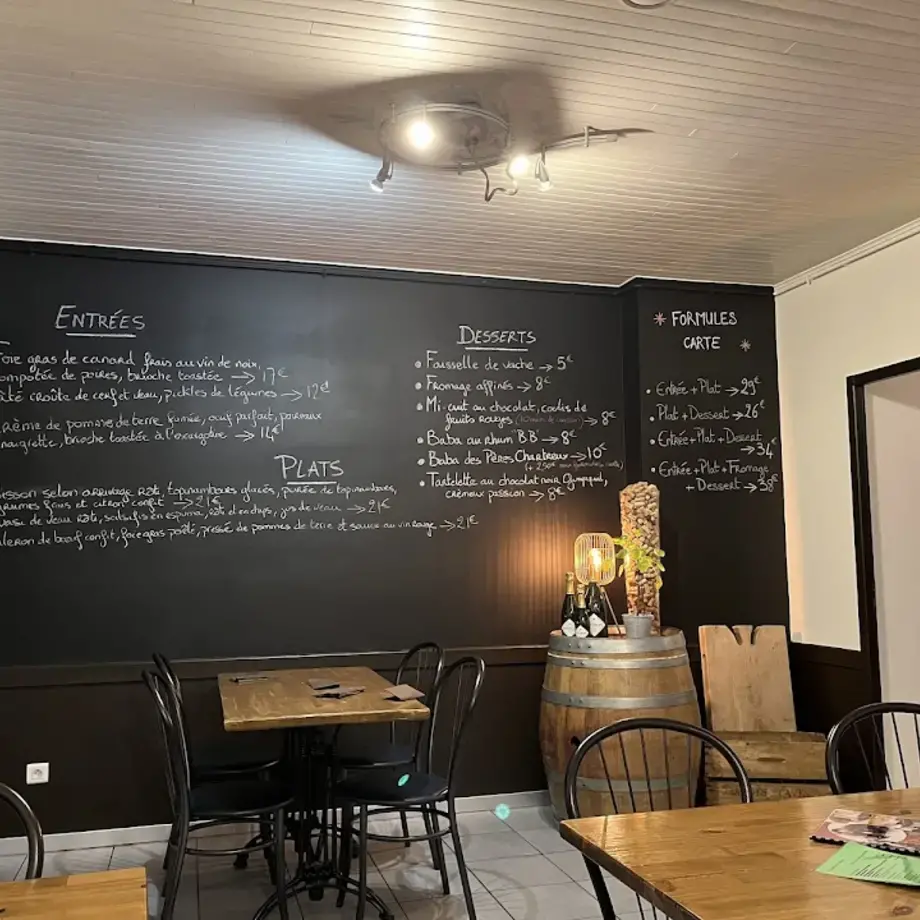 ENTRÉES
foie gras de canard frais au vin de noix,
compotée de poires, brioche toastée → 17€
pâté croûte de cerf et veau, pickles de légumes → 12€
crème de pomme de terre fumée, œuf parfait, poireaux
vinaigrette, brioche toastée à l'
→ 14€
PLATS
Poisson selon arrivage rôti, topinambours glacés, purée de topinambours,
agrumes frais et citron confit → 21€
Quasi de veau rôti, salsifis en espuma, rôti et en chips, jus de veau → 21€
Paleron de bœuf confit, foie gras poêlé, pressé de pommes de terre et sauce au vin rouge → 21€
DESSERTS
• Faisselle de vache → 5€
• Fromage affinés → 8€
• Mi-cuit au chocolat, coulis de
fruits rouges
→ 8€
• Baba au rhum B.B → 8€
• Baba des Pères Chartreux → 10€
• Tartelette au chocolat noir
crémeux passion → 8€
* FORMULES
CARTE *
• Entrée + Plat → 29€
• Plat + Dessert → 26€
• Entrée + Plat + Dessert
→ 34
• Entrée + Plat + Fromage
+ Dessert → 38€